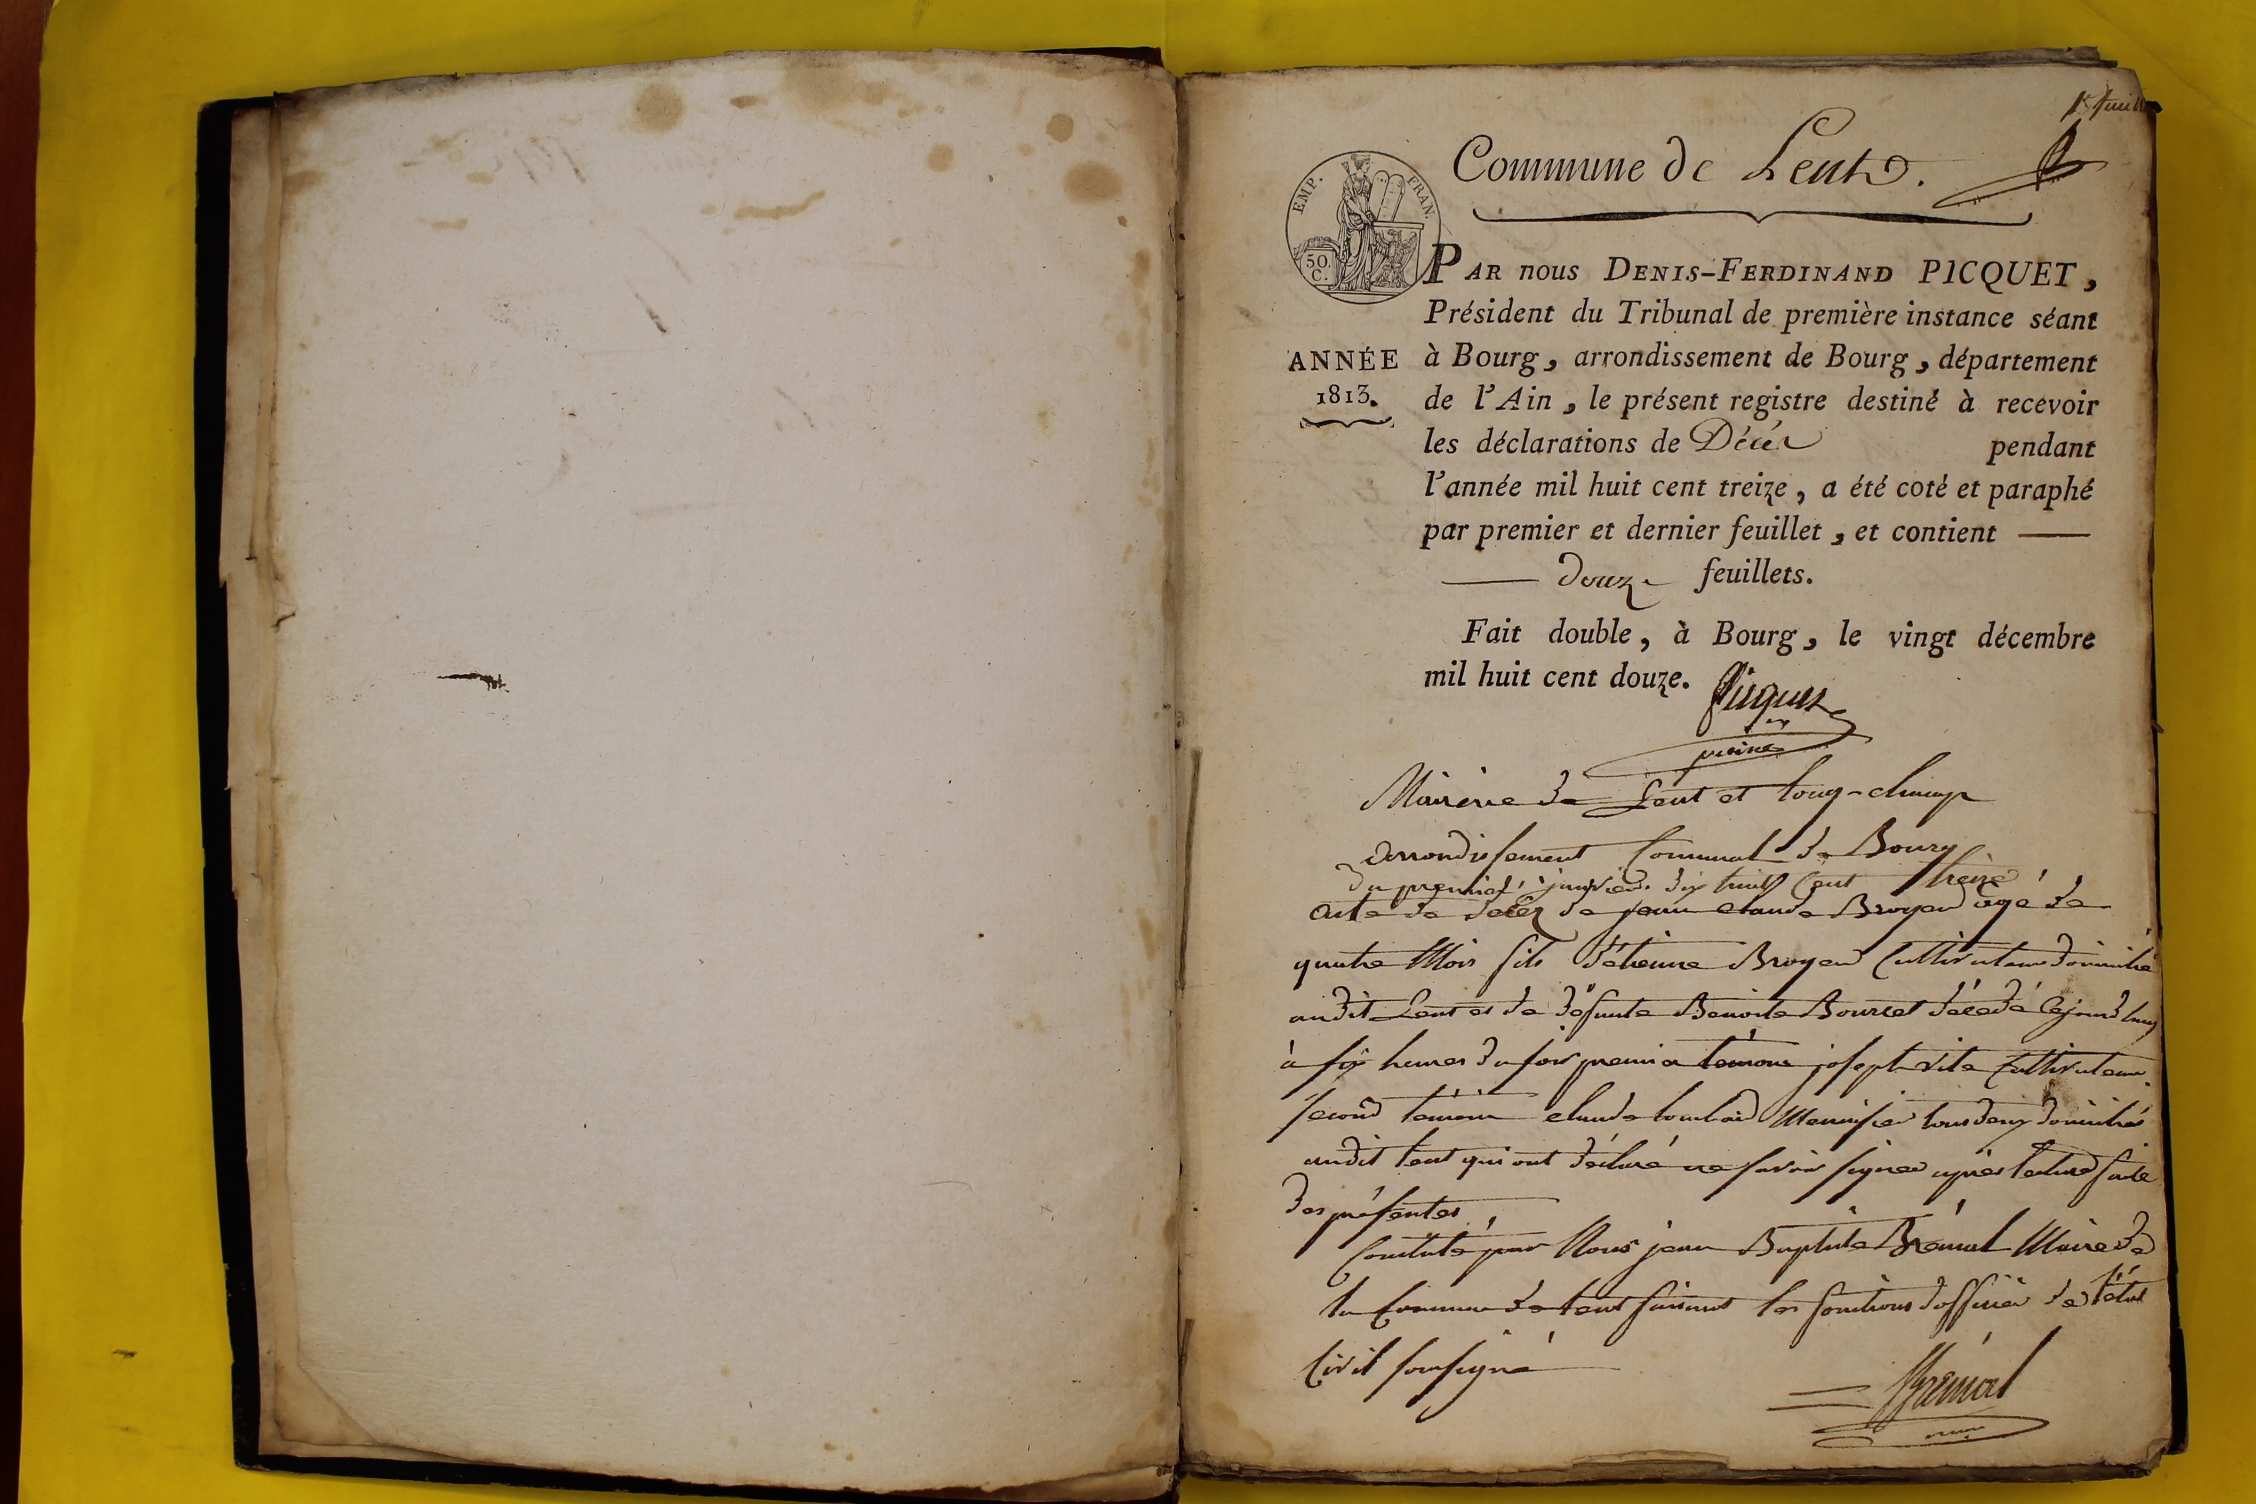 1er feuillet
Commune de Lent.
EMP. FRAN.
50. C.
PAR nous DENIS-FERDINAND PICQUET,
Président du Tribunal de première instance séant
ANNÉE
1813.
à Bourg, arrondissement de Bourg, département
de l'Ain, le présent registre destiné à recevoir
les déclarations de Décès pendant
l'année mil huit cent treize, a été coté et paraphé
par premier et dernier feuillet, et contient —
— douze feuillets.
Fait double, à Bourg, le vingt décembre
mil huit cent douze.
Picquet
Mairie de Lent et long-champ
arrondissement Communal de Bourg
du premier janvier dix huit Cent treize
acte de décéz de jean claude Broyer âgé de
quatre Mois fils d'étienne Broyer Cultivateur domicilié
audit Lent et de défunte Benoite Bourcet décédé Cejourd'huy
à six heures du soir premier témoin joseph vite Cultivateur
second témoin claude Menuisier tous deux domiciliés
audit lent qui ont déclaré ne savoir signer après lecture faite
des présentes
Constaté par Nous jean Baptiste Brémal Maire de
la Commune de lent faisant les fonctions d'officier de l'état
Civil soussigné
Brémal